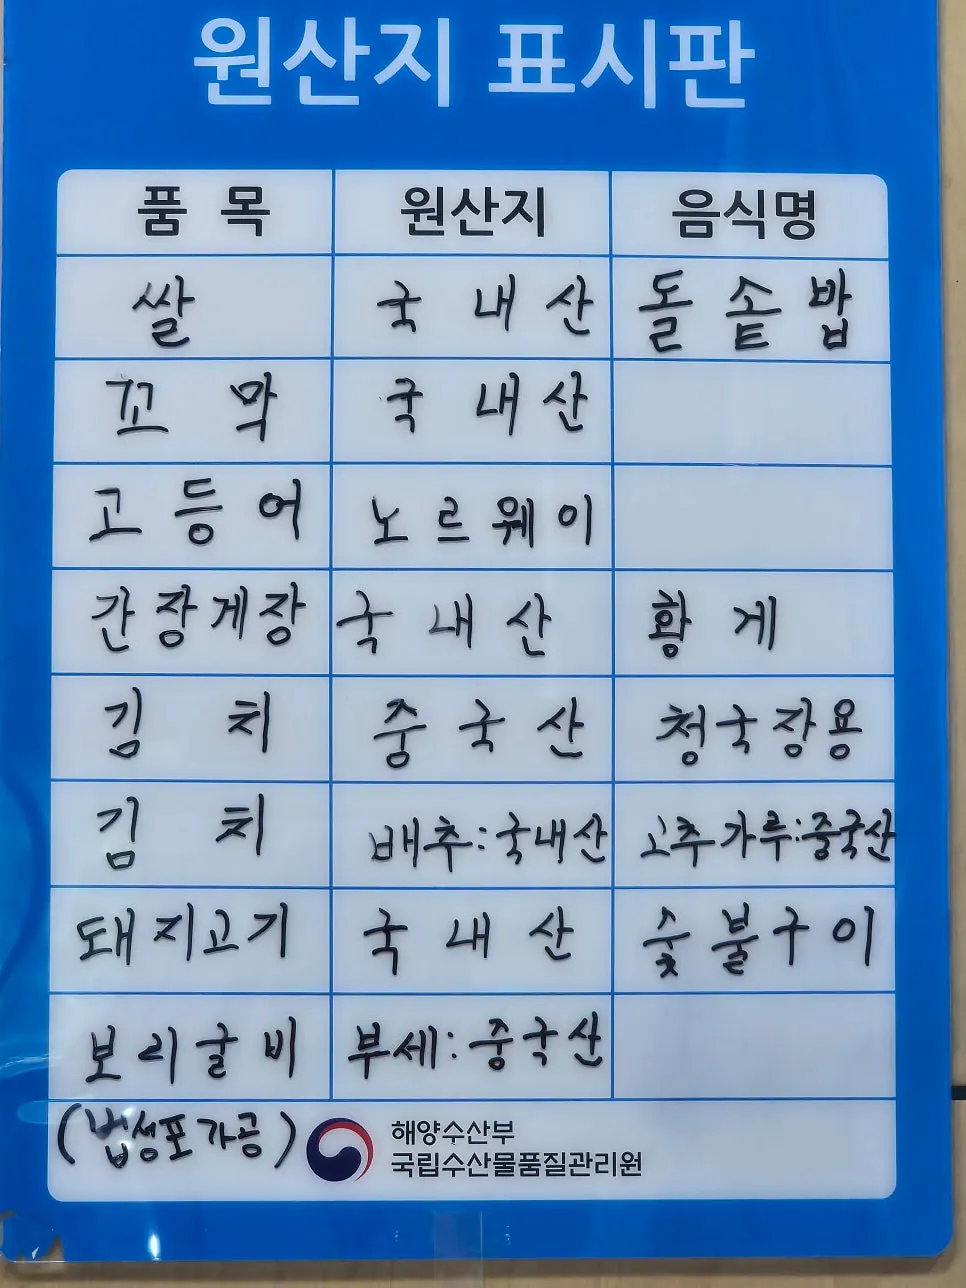 원산지 표시판
품 목 원산지 음식명
쌀 국내산 돌솥밥
꼬막 국내산
고등어 노르웨이
간장게장 국내산 황게
김치 중국산 청국장용
김치 배추:국내산 고추가루:중국산
돼지고기 국내산 숯불구이
보리굴비 부세:중국산
(법성포가공) 해양수산부
국립수산물품질관리원